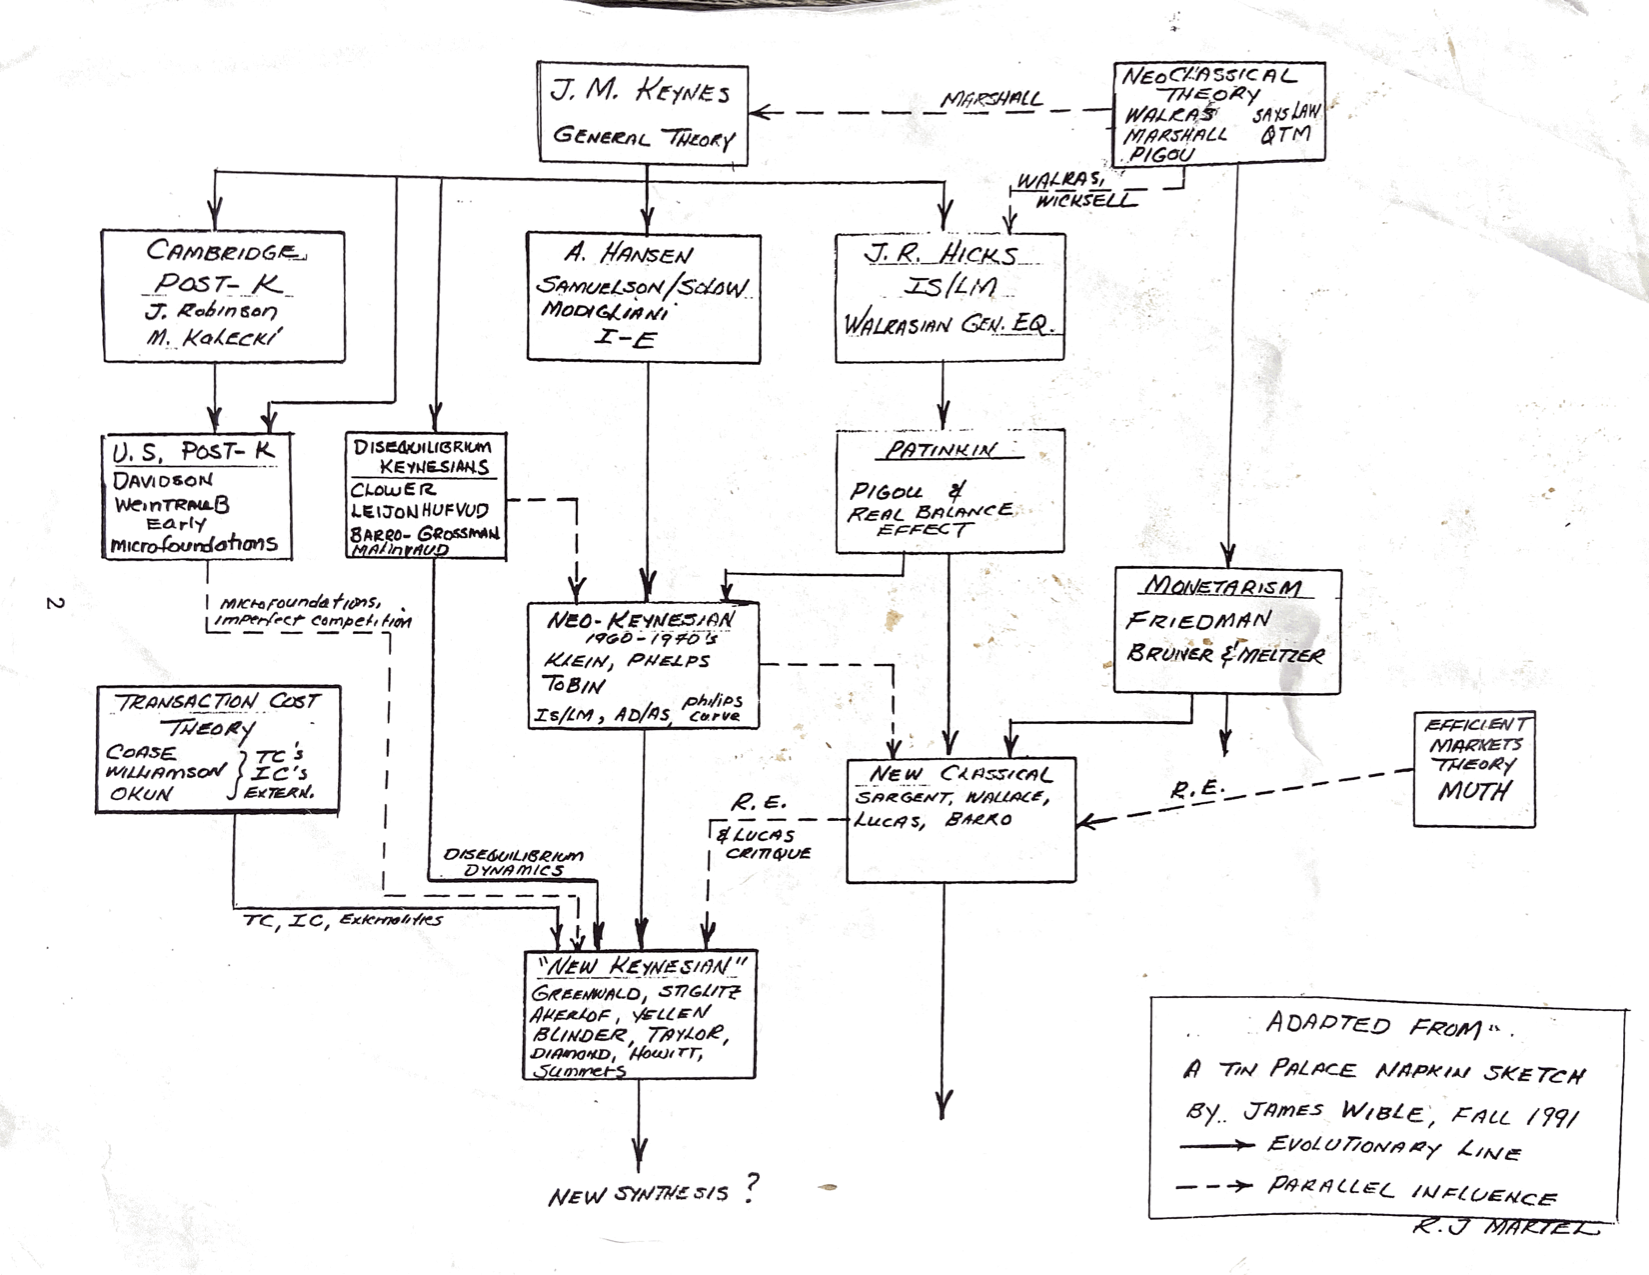 J. M. KEYNES
GENERAL THEORY
MARSHALL
NEOCLASSICAL
THEORY
WALRAS SAYS LAW
MARSHALL QTM
PIGOU
WALRAS,
WICKSELL
CAMBRIDGE
POST-K
J. Robinson
M. Kalecki
A. HANSEN
SAMUELSON/SOLOW
MODIGLIANI
I-E
J. R. HICKS
IS/LM
WALRASIAN GEN. EQ.
U.S. POST-K
DAVIDSON
WEINTRAUB
Early
microfoundations
DISEQUILIBRIUM
KEYNESIANS
CLOWER
LEIJONHUFVUD
BARRO-GROSSMAN
MALINVAUD
PATINKIN
PIGOU &
REAL BALANCE
EFFECT
MONETARISM
FRIEDMAN
BRUNER & MELTZER
2
microfoundations,
imperfect competition
NEO-KEYNESIAN
1960-1970's
KLEIN, PHELPS
TOBIN
IS/LM, AD/AS, philips
curve
TRANSACTION COST
THEORY
COASE } TC'S
WILLIAMSON } IC'S
OKUN } EXTERN.
NEW CLASSICAL
SARGENT, WALLACE,
LUCAS, BARRO
EFFICIENT
MARKETS
THEORY
MUTH
R.E.
R.E.
& LUCAS
CRITIQUE
DISEQUILIBRIUM
DYNAMICS
TC, IC, Externalities
"NEW KEYNESIAN"
GREENWALD, STIGLITZ
AKERLOF, YELLEN
BLINDER, TAYLOR,
DIAMOND, HOWITT,
Summers
NEW SYNTHESIS ?
ADAPTED FROM
A TIN PALACE NAPKIN SKETCH
BY JAMES WIBLE, FALL 1991
EVOLUTIONARY LINE
PARALLEL INFLUENCE
R. J MARTEL